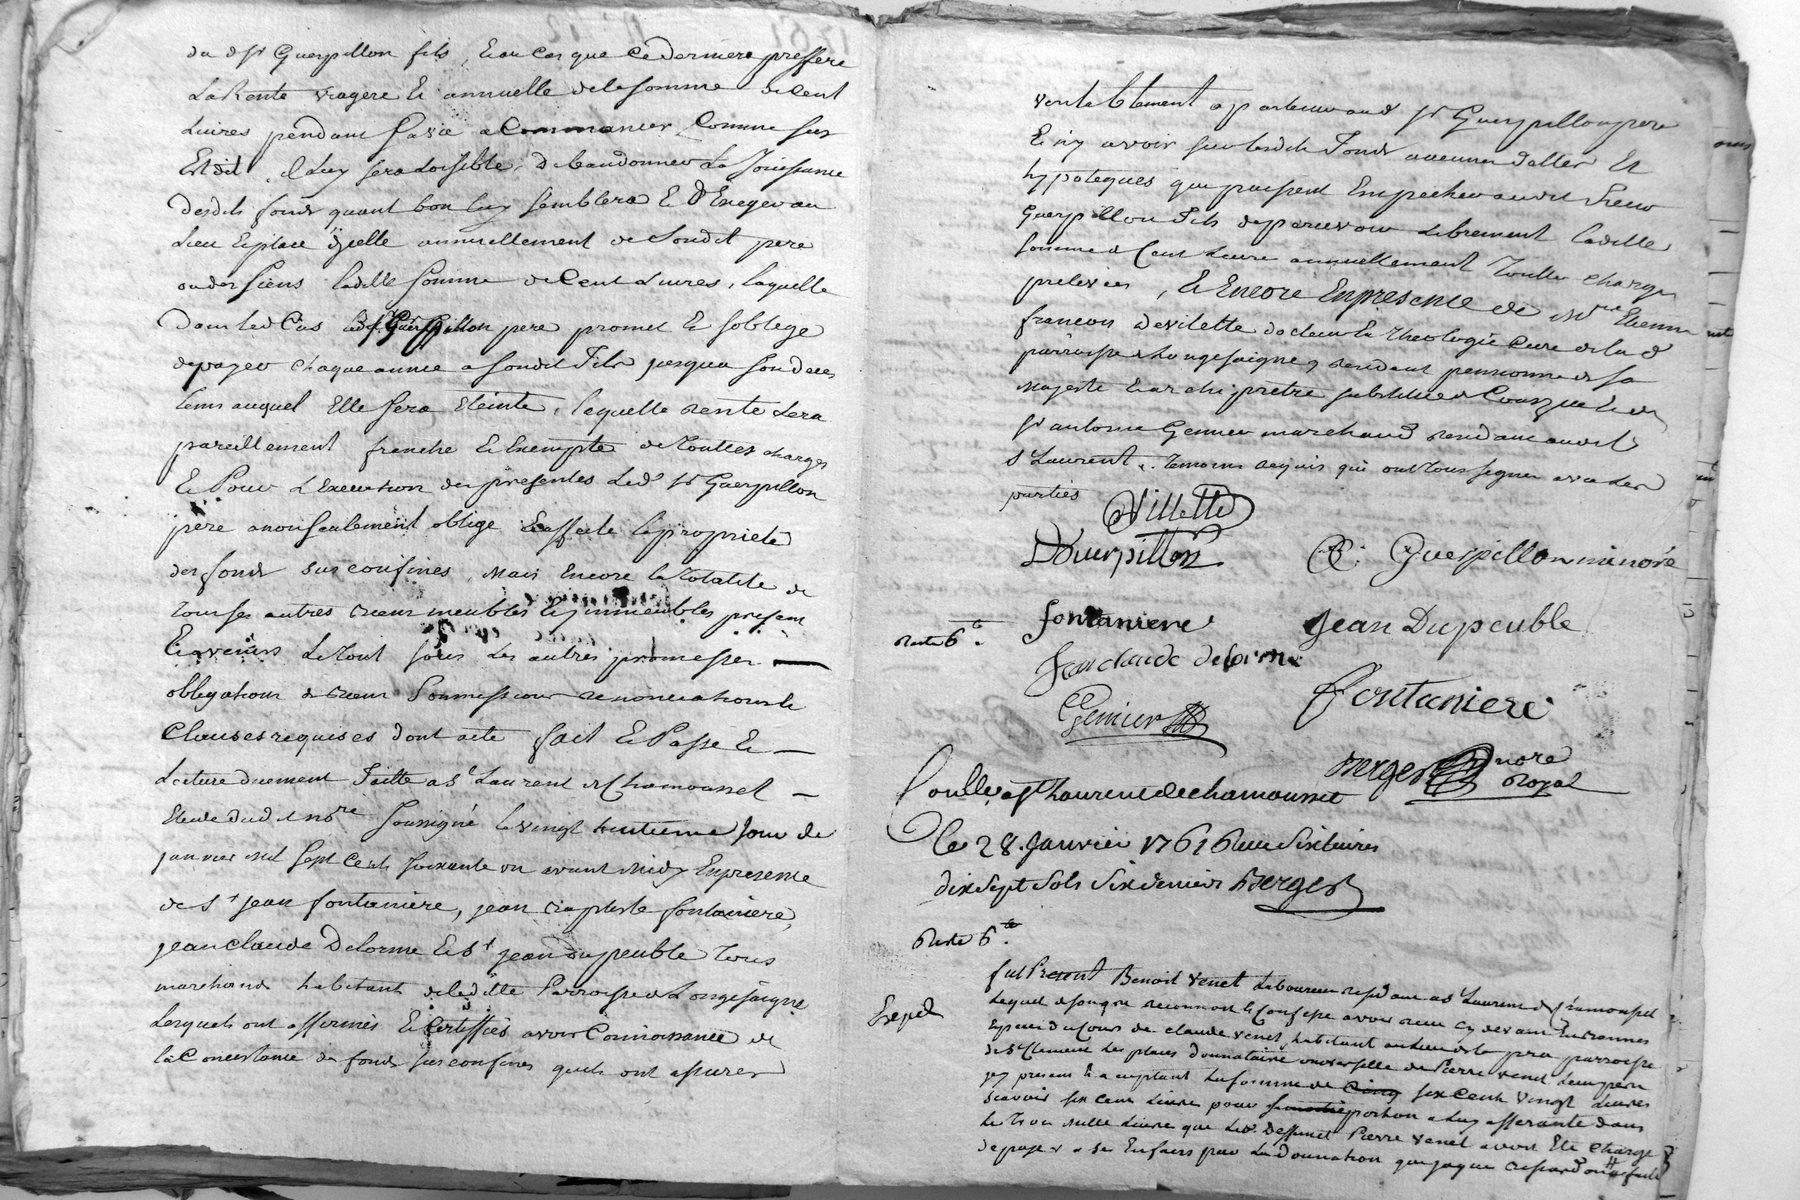 du d sr Guerpillon fils, Et au Cas que Ce dernier preffere
La Rente viagere Et annuelle de la somme de Cent
Livres pendant sa vie a Commancer Comme sus
Est dit, il Luy sera Loisible d'abandonner La Jouissance
desdits fonds quant bon luy semblera Et d'Exeger au
Lieu Et place d'icelle annuellement de Sondit pere
ou des siens ladite somme de Cent Livres, laquelle
Dans led Cas led sr Guerpillon pere promet Et s'oblege
de payer chaque année a sondit fils jusqua son deces
tems auquel Elle sera Eteinte, laquelle rente sera
pareillement franche Et Exempte de Touttes charges
Et Pour L'Execution des presentes Led sr Guerpillon
pere a non seulement oblige Et affecte la proprieté
des fonds sus confines, Mais Encore la Totalité de
tous ses autres biens meubles Et immeubles presens
Et avenirs Le Tout sous Les autres promesses
obligations de biens soumissions renonciations Et
Clauses requises dont acte fait Et Passé Et
Lecture duement faitte a st Laurent de Chamousset
Etude dud nre soussigné le vingt huitieme Jour de
janvier Mil sept Cents soixante un avant Midy En presence
de sr jean fontaniere, jean Baptiste fontaniere,
jean claude Delorme Et sr jean Dupeuble Tous
marchands habitant de laditte Parroisse de Longesaigne
Lesquels ont affirmés Et Certiffiés avoir Connoissance de
la Consistance des fonds sus confines quils ont assurer
veritablement apartenir aud sr Guerpillon pere
Et n'y avoir sur lesdits fonds aucunes dettes Et
hypoteques qui puissent Empecher audit sieur
Guerpillon fils de percevoir Librement ladite
somme de Cent Livre annuellement Toutte charge
prelevées, Et Encore En presence de Mre Etienne
francois Devilette docteur En Theologie Cure de la d
parroisse de Longesaigne y residant pensionné de sa
Majeste Et archiprêtre
sr antoine Genier marchand residant audit
st Laurent. Temoins requis qui ont Tous signer avec les
parties
Villette
DGuerpillon
Guerpillon minoré
fontaniere
Jean Dupeuble
Reste 6e.
Jean claude delorme
Fontaniere
Genier
Berger nore
Royal
Conlle a st Laurent de chamousset
le 28. Janvier 1761 Receu Six livres
dix Sept Sols Six deniers Berger
Reste 6te.
fut Present Benoit Venet Laboureur residant a st Laurent de Chamousset
Lequel de son gre reconnoit Et Confesse avoir receu cy devant En bonnes
Especes du Cours de claude Venet, habitant au Lieu de la pra parroisse
de St Clement Les places donnataire universelle de Pierre Venet Leur pere
icy present Et acceptant La somme de six cents vingt Livres
scavoir six cent Livres pour portion a Luy afferante dans
Le Trois mille Livres que led. Deffunt Pierre Venet avoit Ete Charge
Exped
de payer a ses Enfans par La donnation